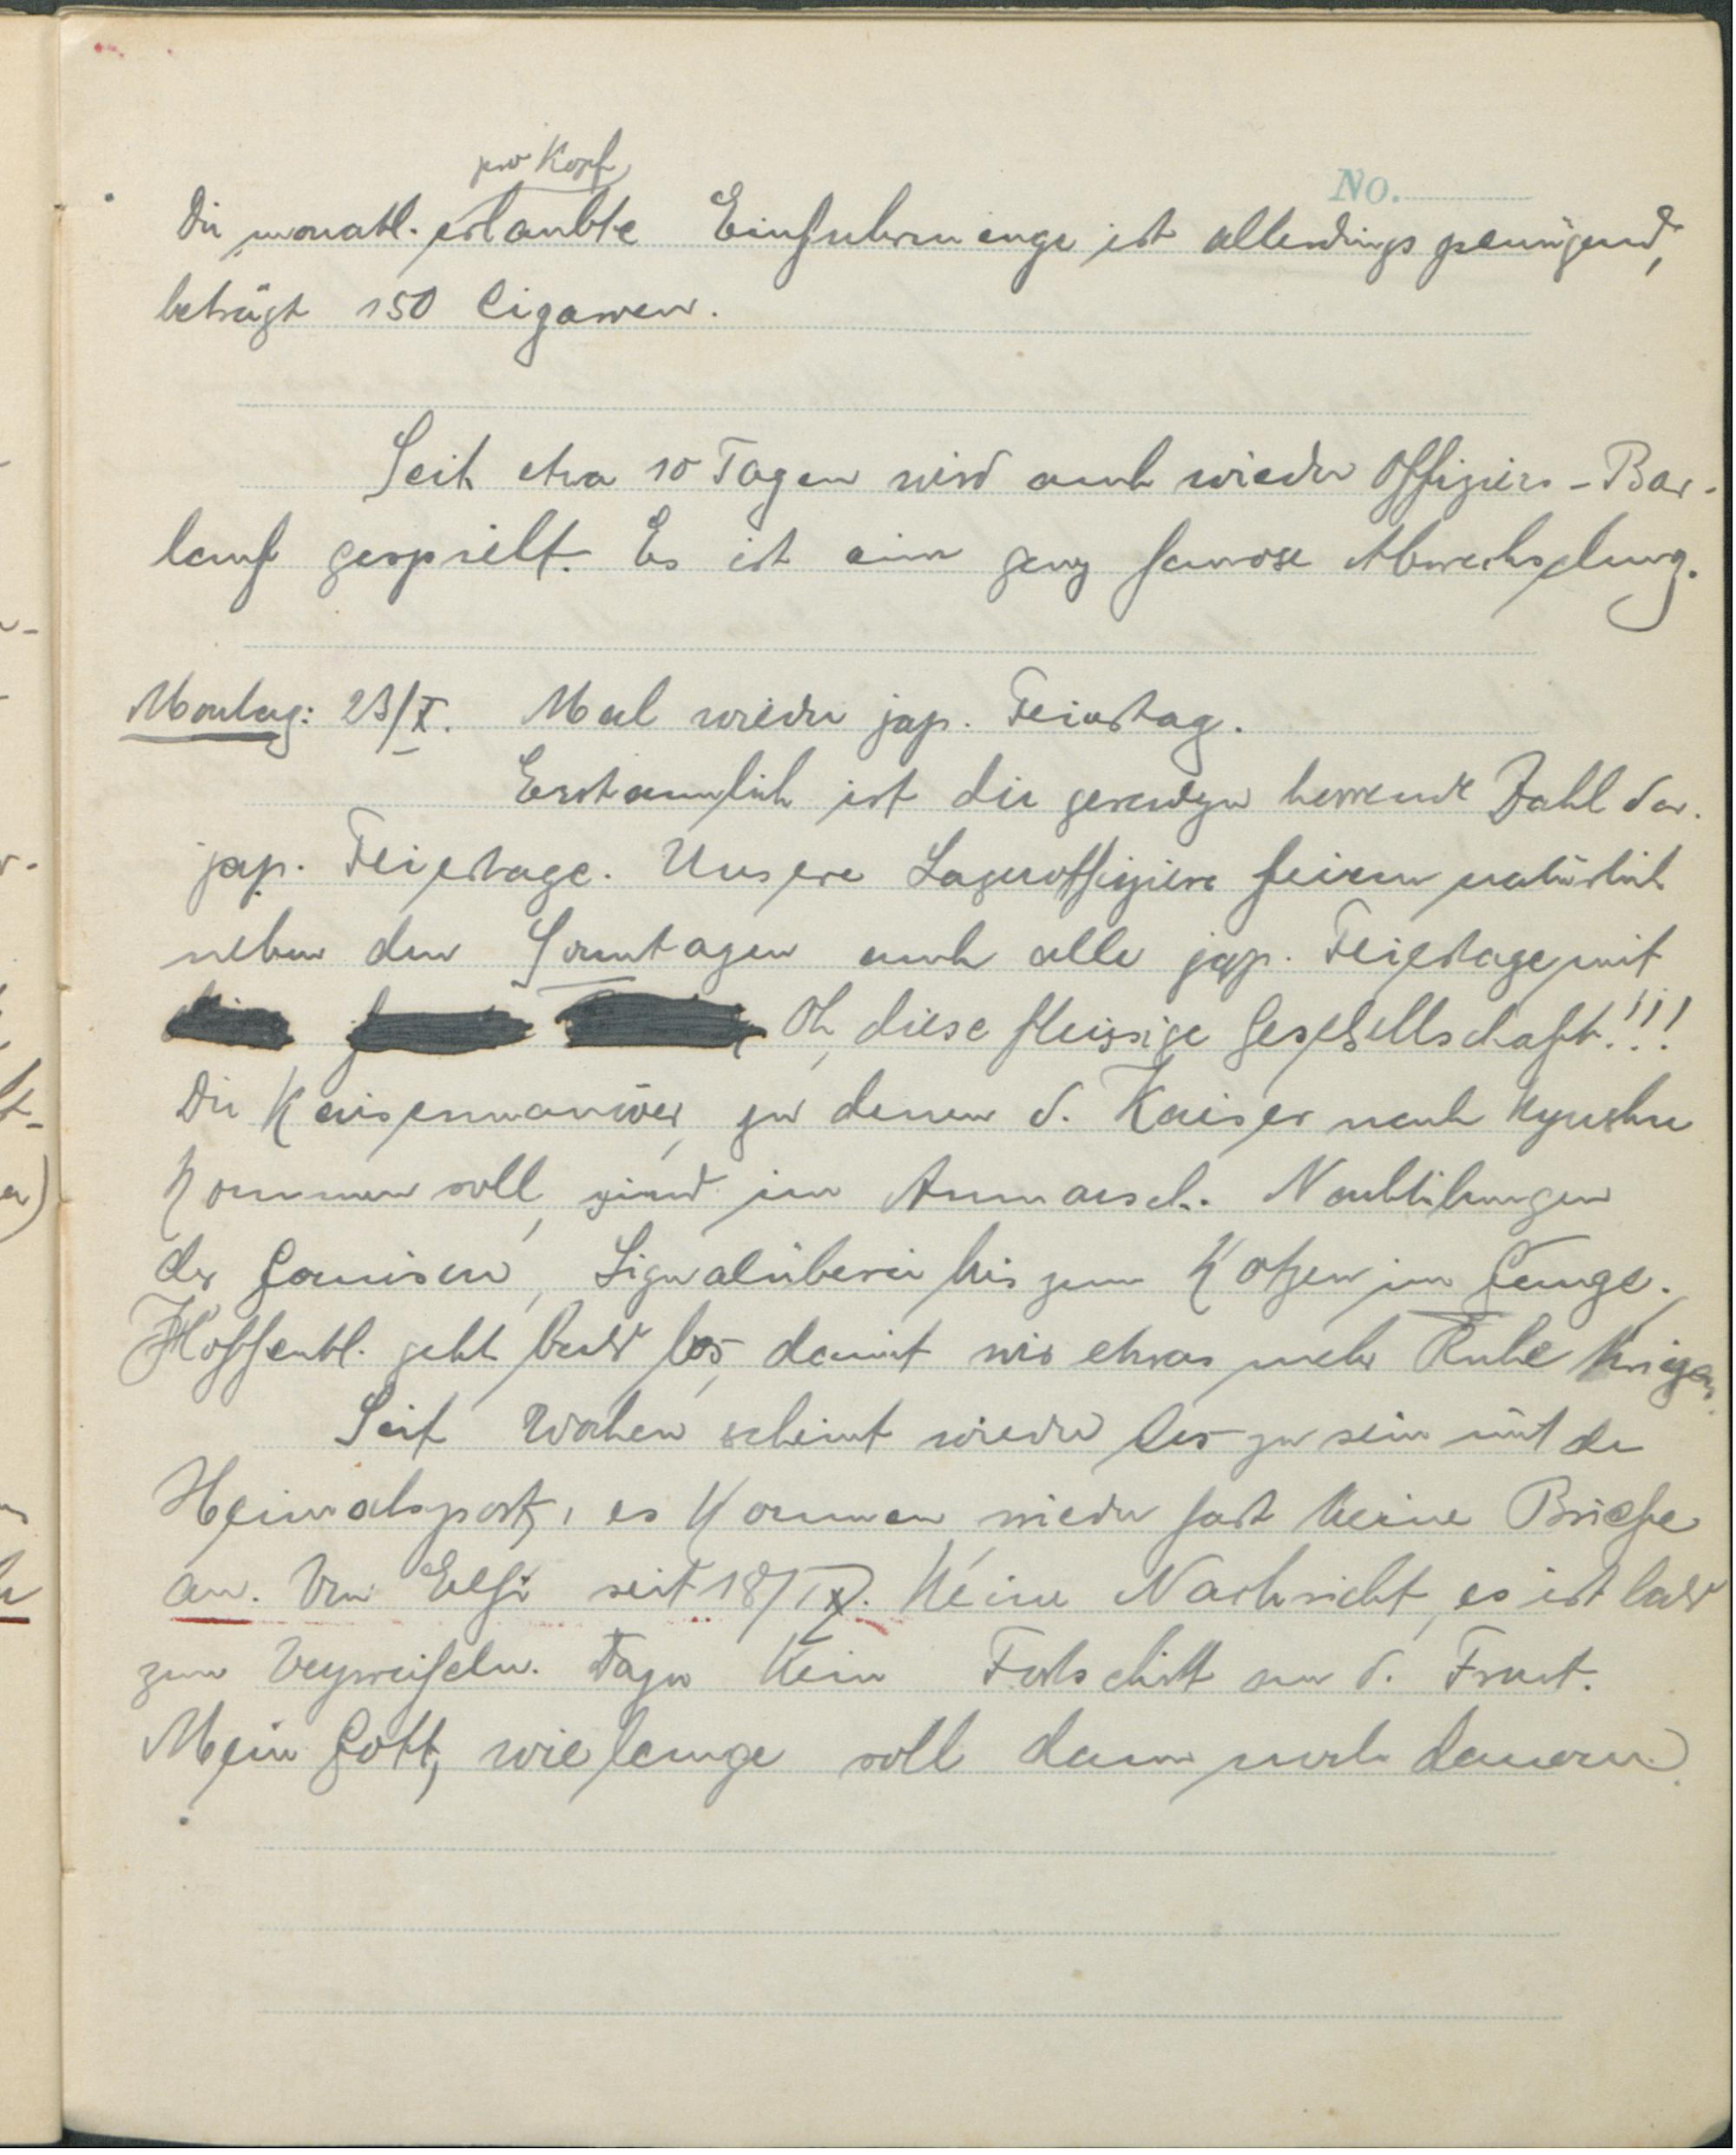 No.
pro Kopf
Die monatl. erlaubte Einfuhrmenge ist allerdings genügend,
beträgt 150 Cigarren.
Seit etwa 10 Tagen wird auch wieder Offiziers-Bar-
lauf gespielt. Es ist eine ganz famose Abwechslung.
Montag: 23/X. Mal wieder jap. Feiertag.
Erstaunlich ist die geradezu horrende Zahl der
jap. Feiertage. Unsere Lageroffiziere feiern natürlich
neben den Sonntagen auch alle jap. Feiertage mit
Oh, diese fleissige Gesellschaft!!!
Die Kaisermanöver, zu denen d. Kaiser nach Kyushu
kommen soll, sind im Anmarsch. Nachtübungen
der Garnison, Signalüberei bis zum Kotzen im Gange.
Hoffentl. geht bald los, damit wir etwas mehr Ruhe kriegen.
Seit Wochen scheint wieder los zu sein mit der
Heimatspost, es kommen wieder fast keine Briefe
an. Von Elfi seit 18/IX. keine Nachricht, es ist bald
zum Verzweifeln. Dazu kein Fortschritt an d. Front.
Mein Gott, wie lange soll dann noch dauern